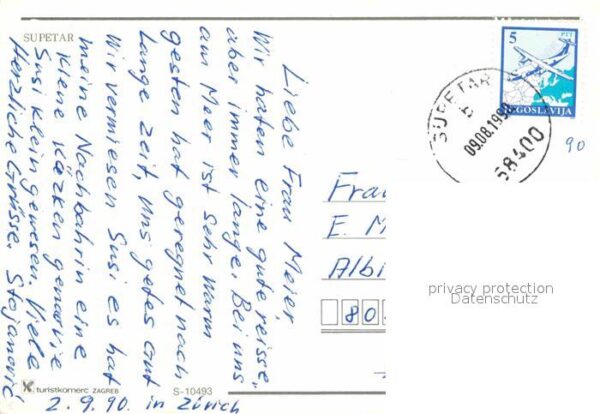 SUPETAR
Liebe Frau Meier,
Wir haten eine gute reisse„
aber immer lange. Bei uns
am Meer ist sehr warm
gesten hat geregnet nach
Lange zeit, uns getes Gut
Wir vermiesen Susi es hat
meine Nachbahrin eine
kleine kazken genau wie
Susi klein gewesen. Viele
Herzliche Grüsse. Stojanović
turistkomerc ZAGREB
S-10493
2.9.90. in Zürich
5
PTT
JUGOSLAVIJA
SUPETAR
b
09.08.1990
58400
90
Frau
E. M
Albi
80
privacy protection
Datenschutz